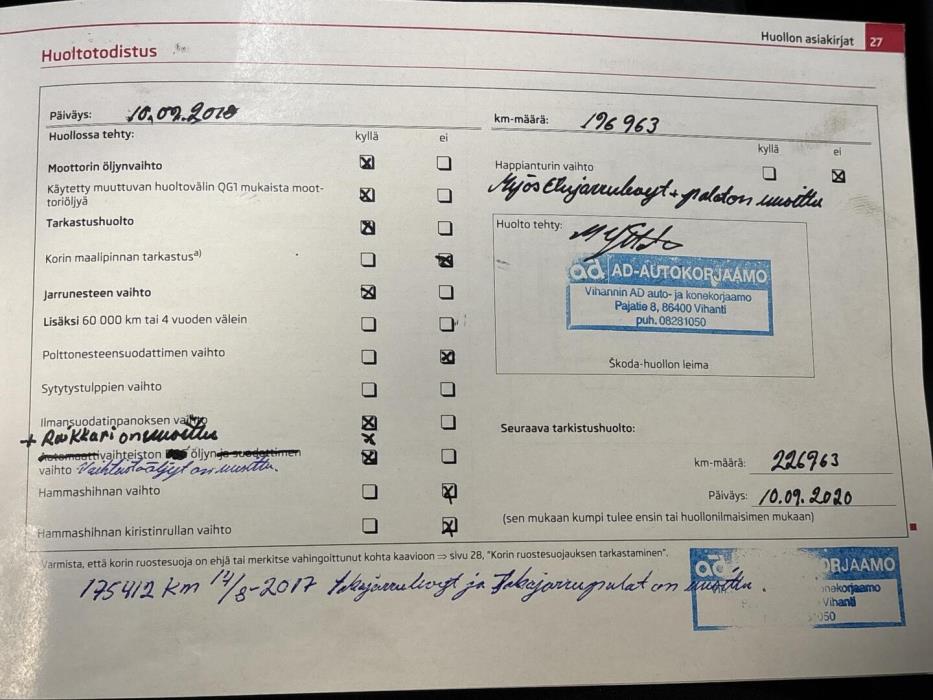 Huollon asiakirjat 27
Huoltotodistus
Päiväys: 10.09.2018
km-määrä: 196 963
Huollossa tehty: kyllä ei
kyllä ei
Moottorin öljynvaihto
Happianturin vaihto
Käytetty muuttuvan huoltovälin QG1 mukaista moot-
toriöljyä
Myös Etujarrulevyt + palat on uusittu
Tarkastushuolto
Huolto tehty:
Korin maalipinnan tarkastus a)
ad AD-AUTOKORJAAMO
Vihannin AD auto- ja konekorjaamo
Pajatie 8, 86400 Vihanti
puh. 08281050
Jarrunesteen vaihto
Lisäksi 60 000 km tai 4 vuoden välein
Polttonesteensuodattimen vaihto
Škoda-huollon leima
Sytytystulppien vaihto
Ilmansuodatinpanoksen vaihto
Seuraava tarkistushuolto:
+ Raikkari on uusittu
automaattivaihteiston öljyn ja suodattimen
vaihto Vaihteistoöljyt on uusittu.
km-määrä: 226963
Hammashihnan vaihto
Päiväys: 10.09.2020
Hammashihnan kiristinrullan vaihto
(sen mukaan kumpi tulee ensin tai huollonilmaisimen mukaan)
Varmista, että korin ruostesuoja on ehjä tai merkitse vahingoittunut kohta kaavioon ⇒ sivu 28, "Korin ruostesuojauksen tarkastaminen".
175412 Km 14/8-2017 takajarrulevyt ja Takajarrupalat on uusittu.
ad ORJAAMO
onekorjaamo
Vihanti
050